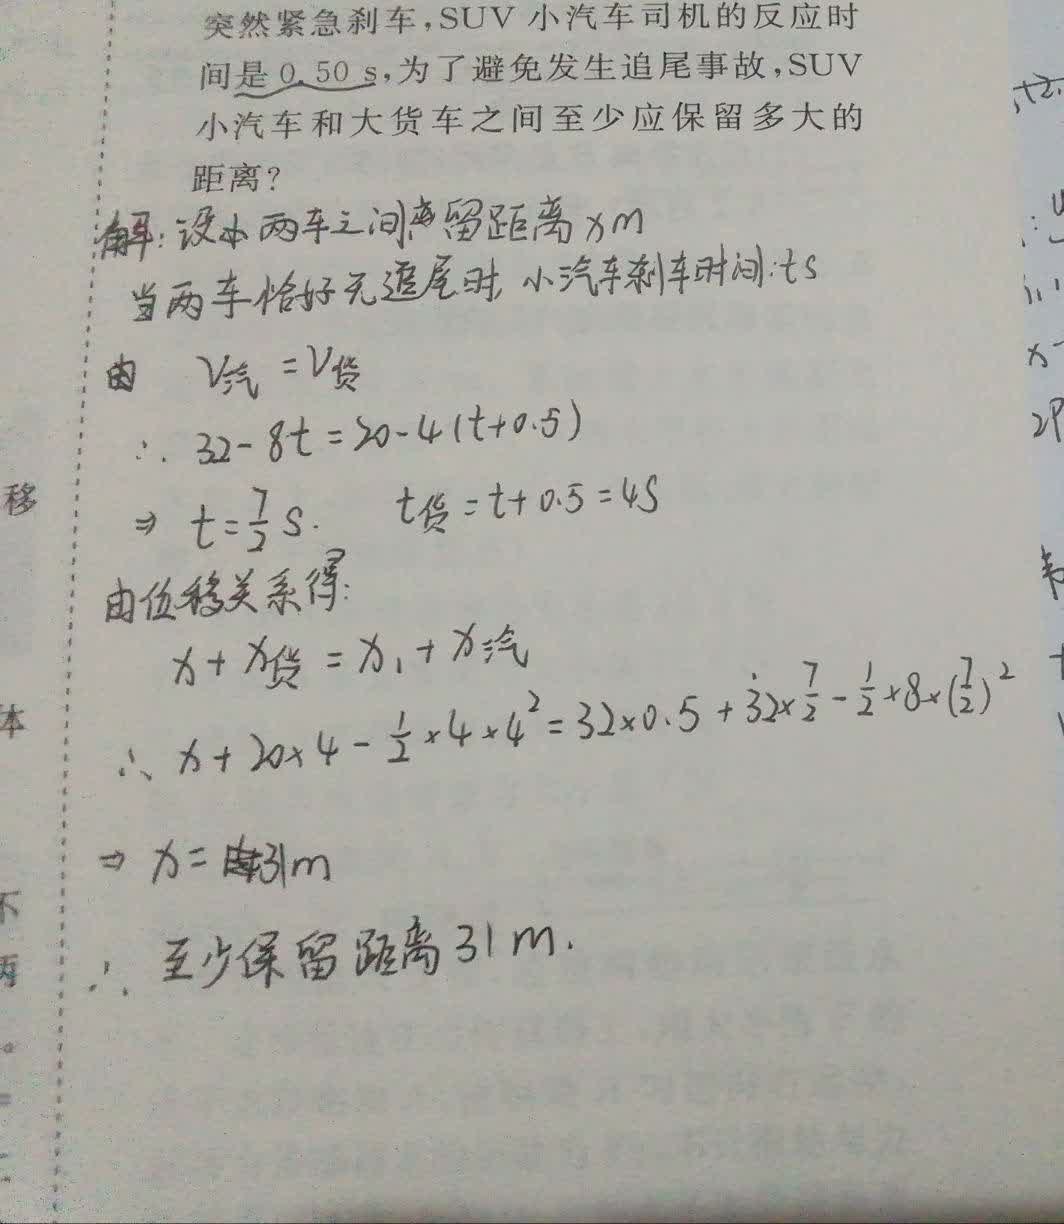 突然紧急刹车,SUV 小汽车司机的反应时
间是 0.50 s,为了避免发生追尾事故,SUV
小汽车和大货车之间至少应保留多大的
距离?
解:设两车之间留距离 x m
当两车恰好无追尾时,小汽车刹车时间:t s
由 V汽 = V货
∴ 32-8t=20-4(t+0.5)
⇒ t=7/2 s. t货=t+0.5=4S
由位移关系得:
x+x货=x₁+x汽
∴ x+20×4-1/2×4×4²=32×0.5+32×7/2-1/2×8×(7/2)²
⇒ x=31m
∴ 至少保留距离31m.
移
体
不
两